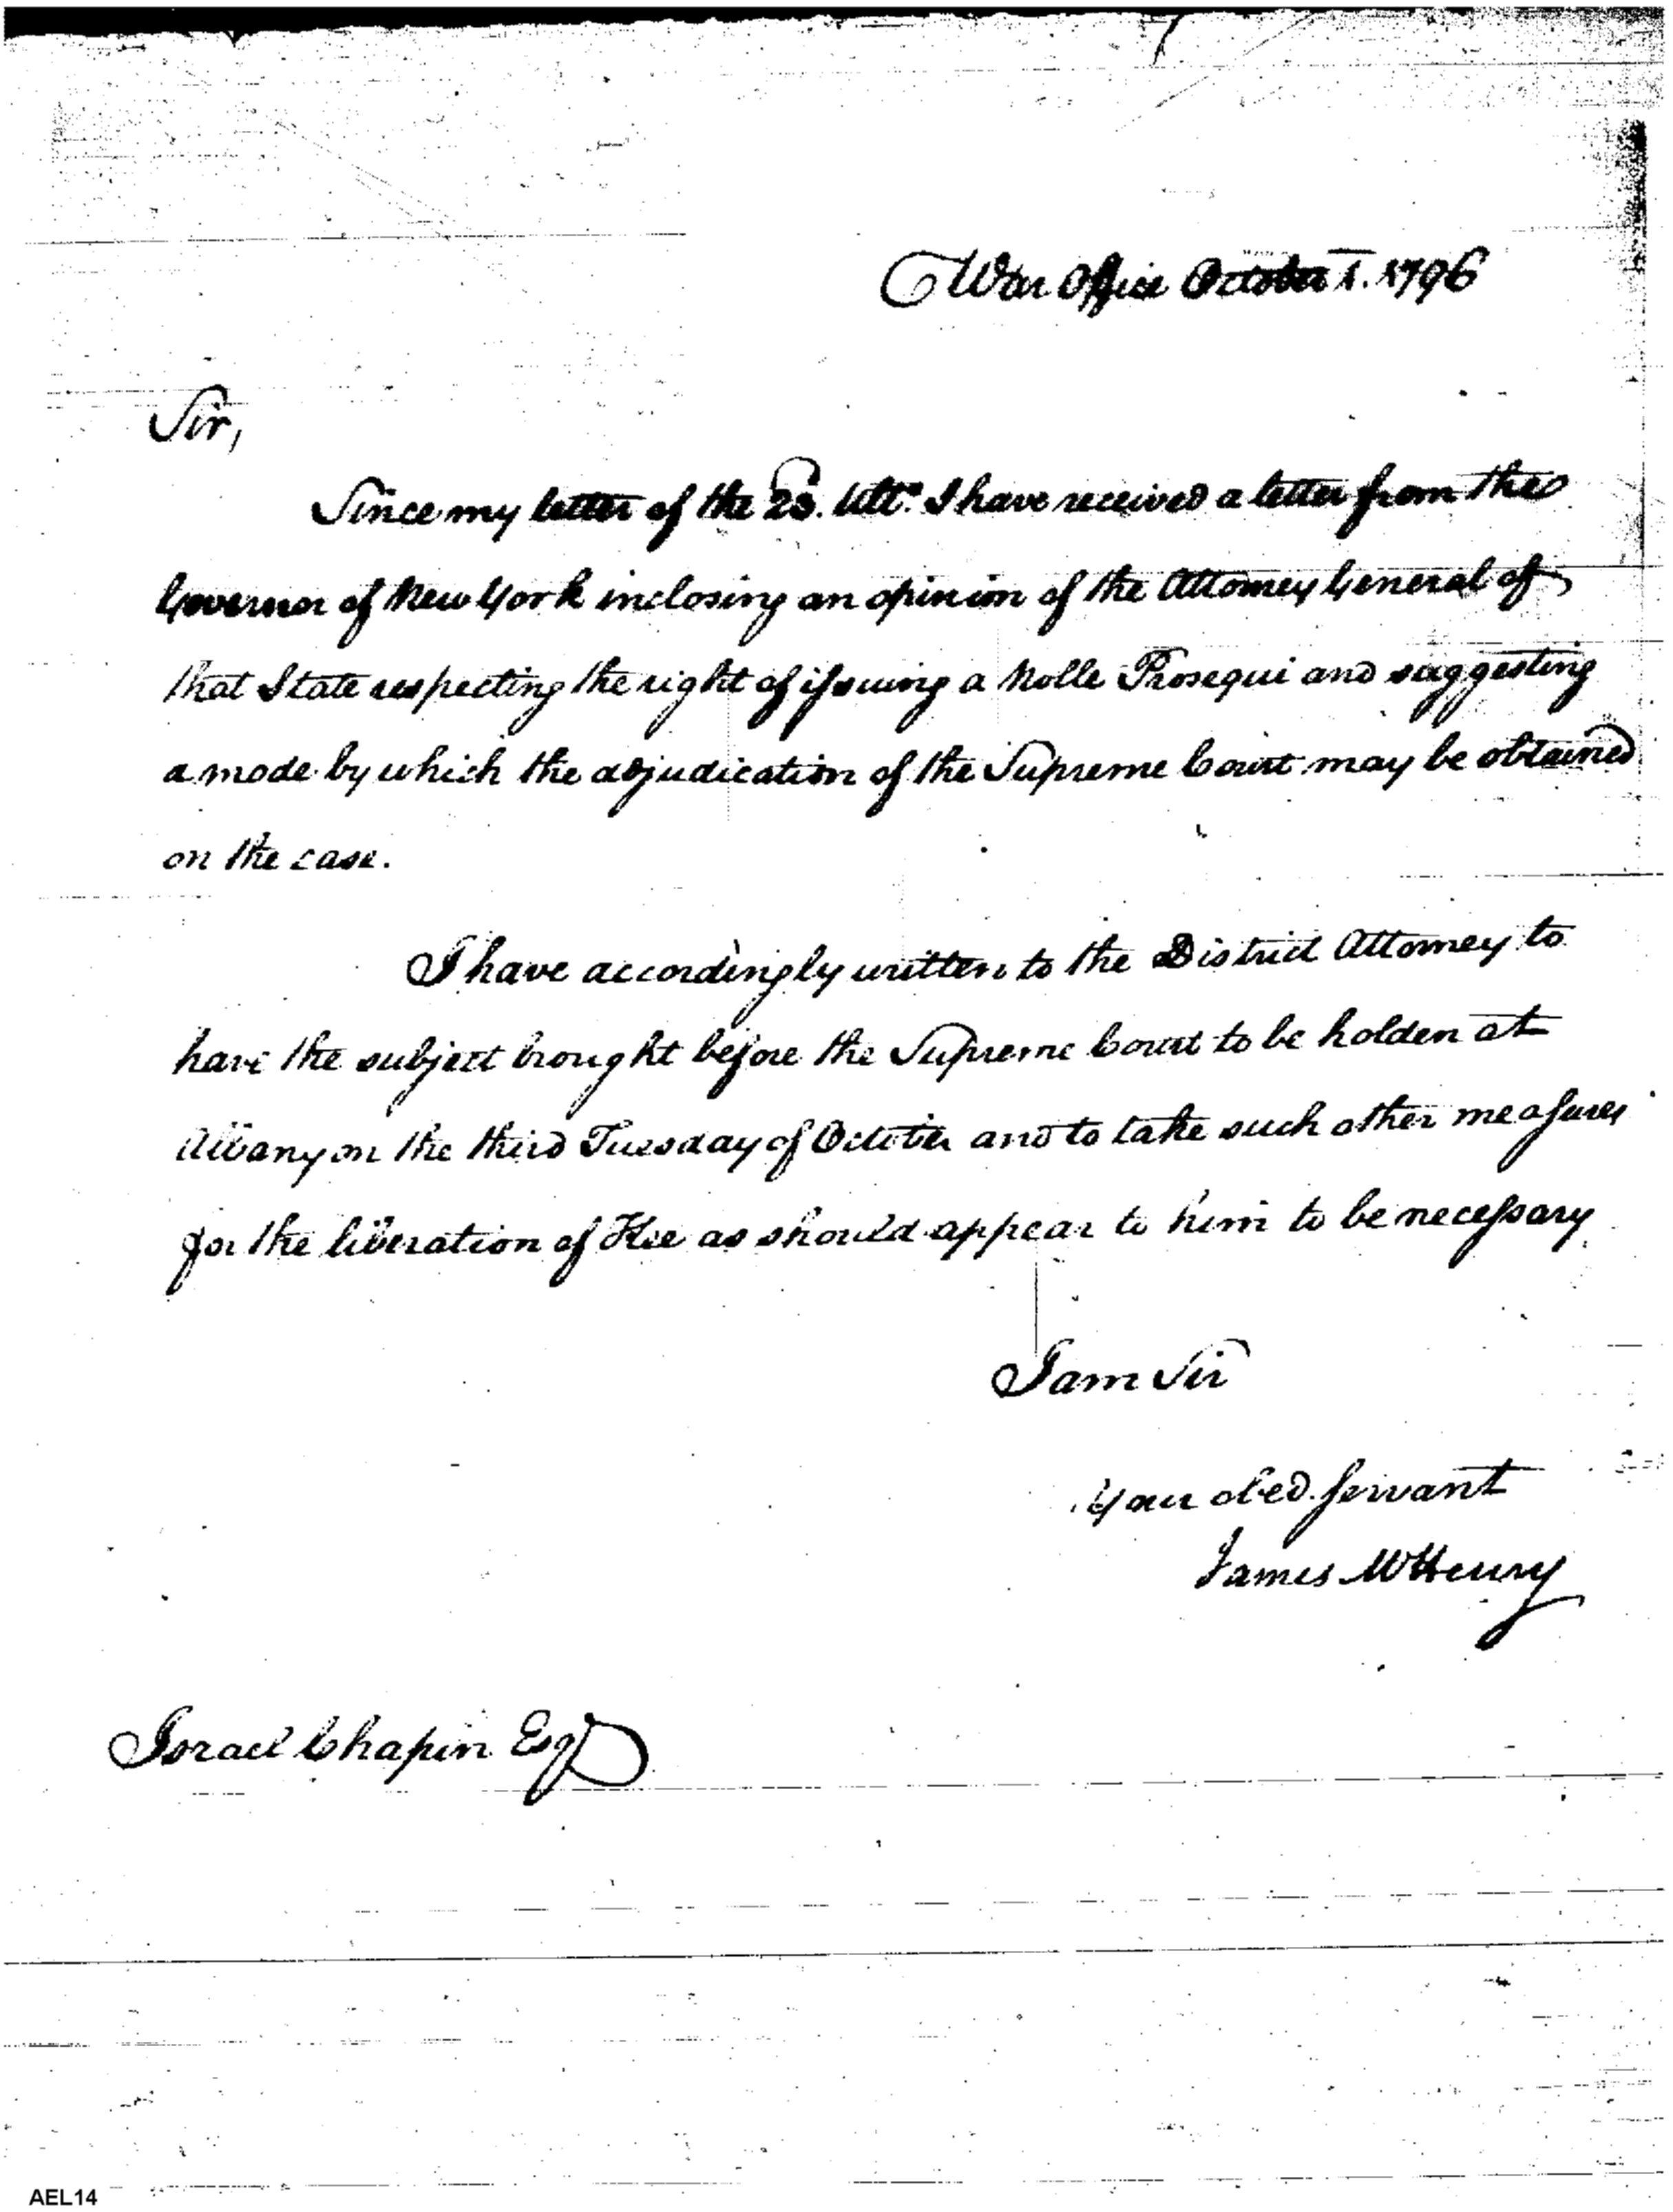 War Office October 1. 1796
Sir,
Since my letter of the 23. Ulto. I have received a letter from the
Governor of New York inclosing an opinion of the Attorney General of
that State respecting the right of issuing a Nolle Prosequi and suggesting
a mode by which the adjudication of the Supreme Court may be obtained
on the case.
I have accordingly written to the District Attorney to
have the subject brought before the Supreme Court to be holden at
Albany on the third Tuesday of October and to take such other measures
for the liberation of Kee as should appear to him to be necessary
I am Sir
Your obed. servant
James McHenry
Israel Chapin Esq
AEL14